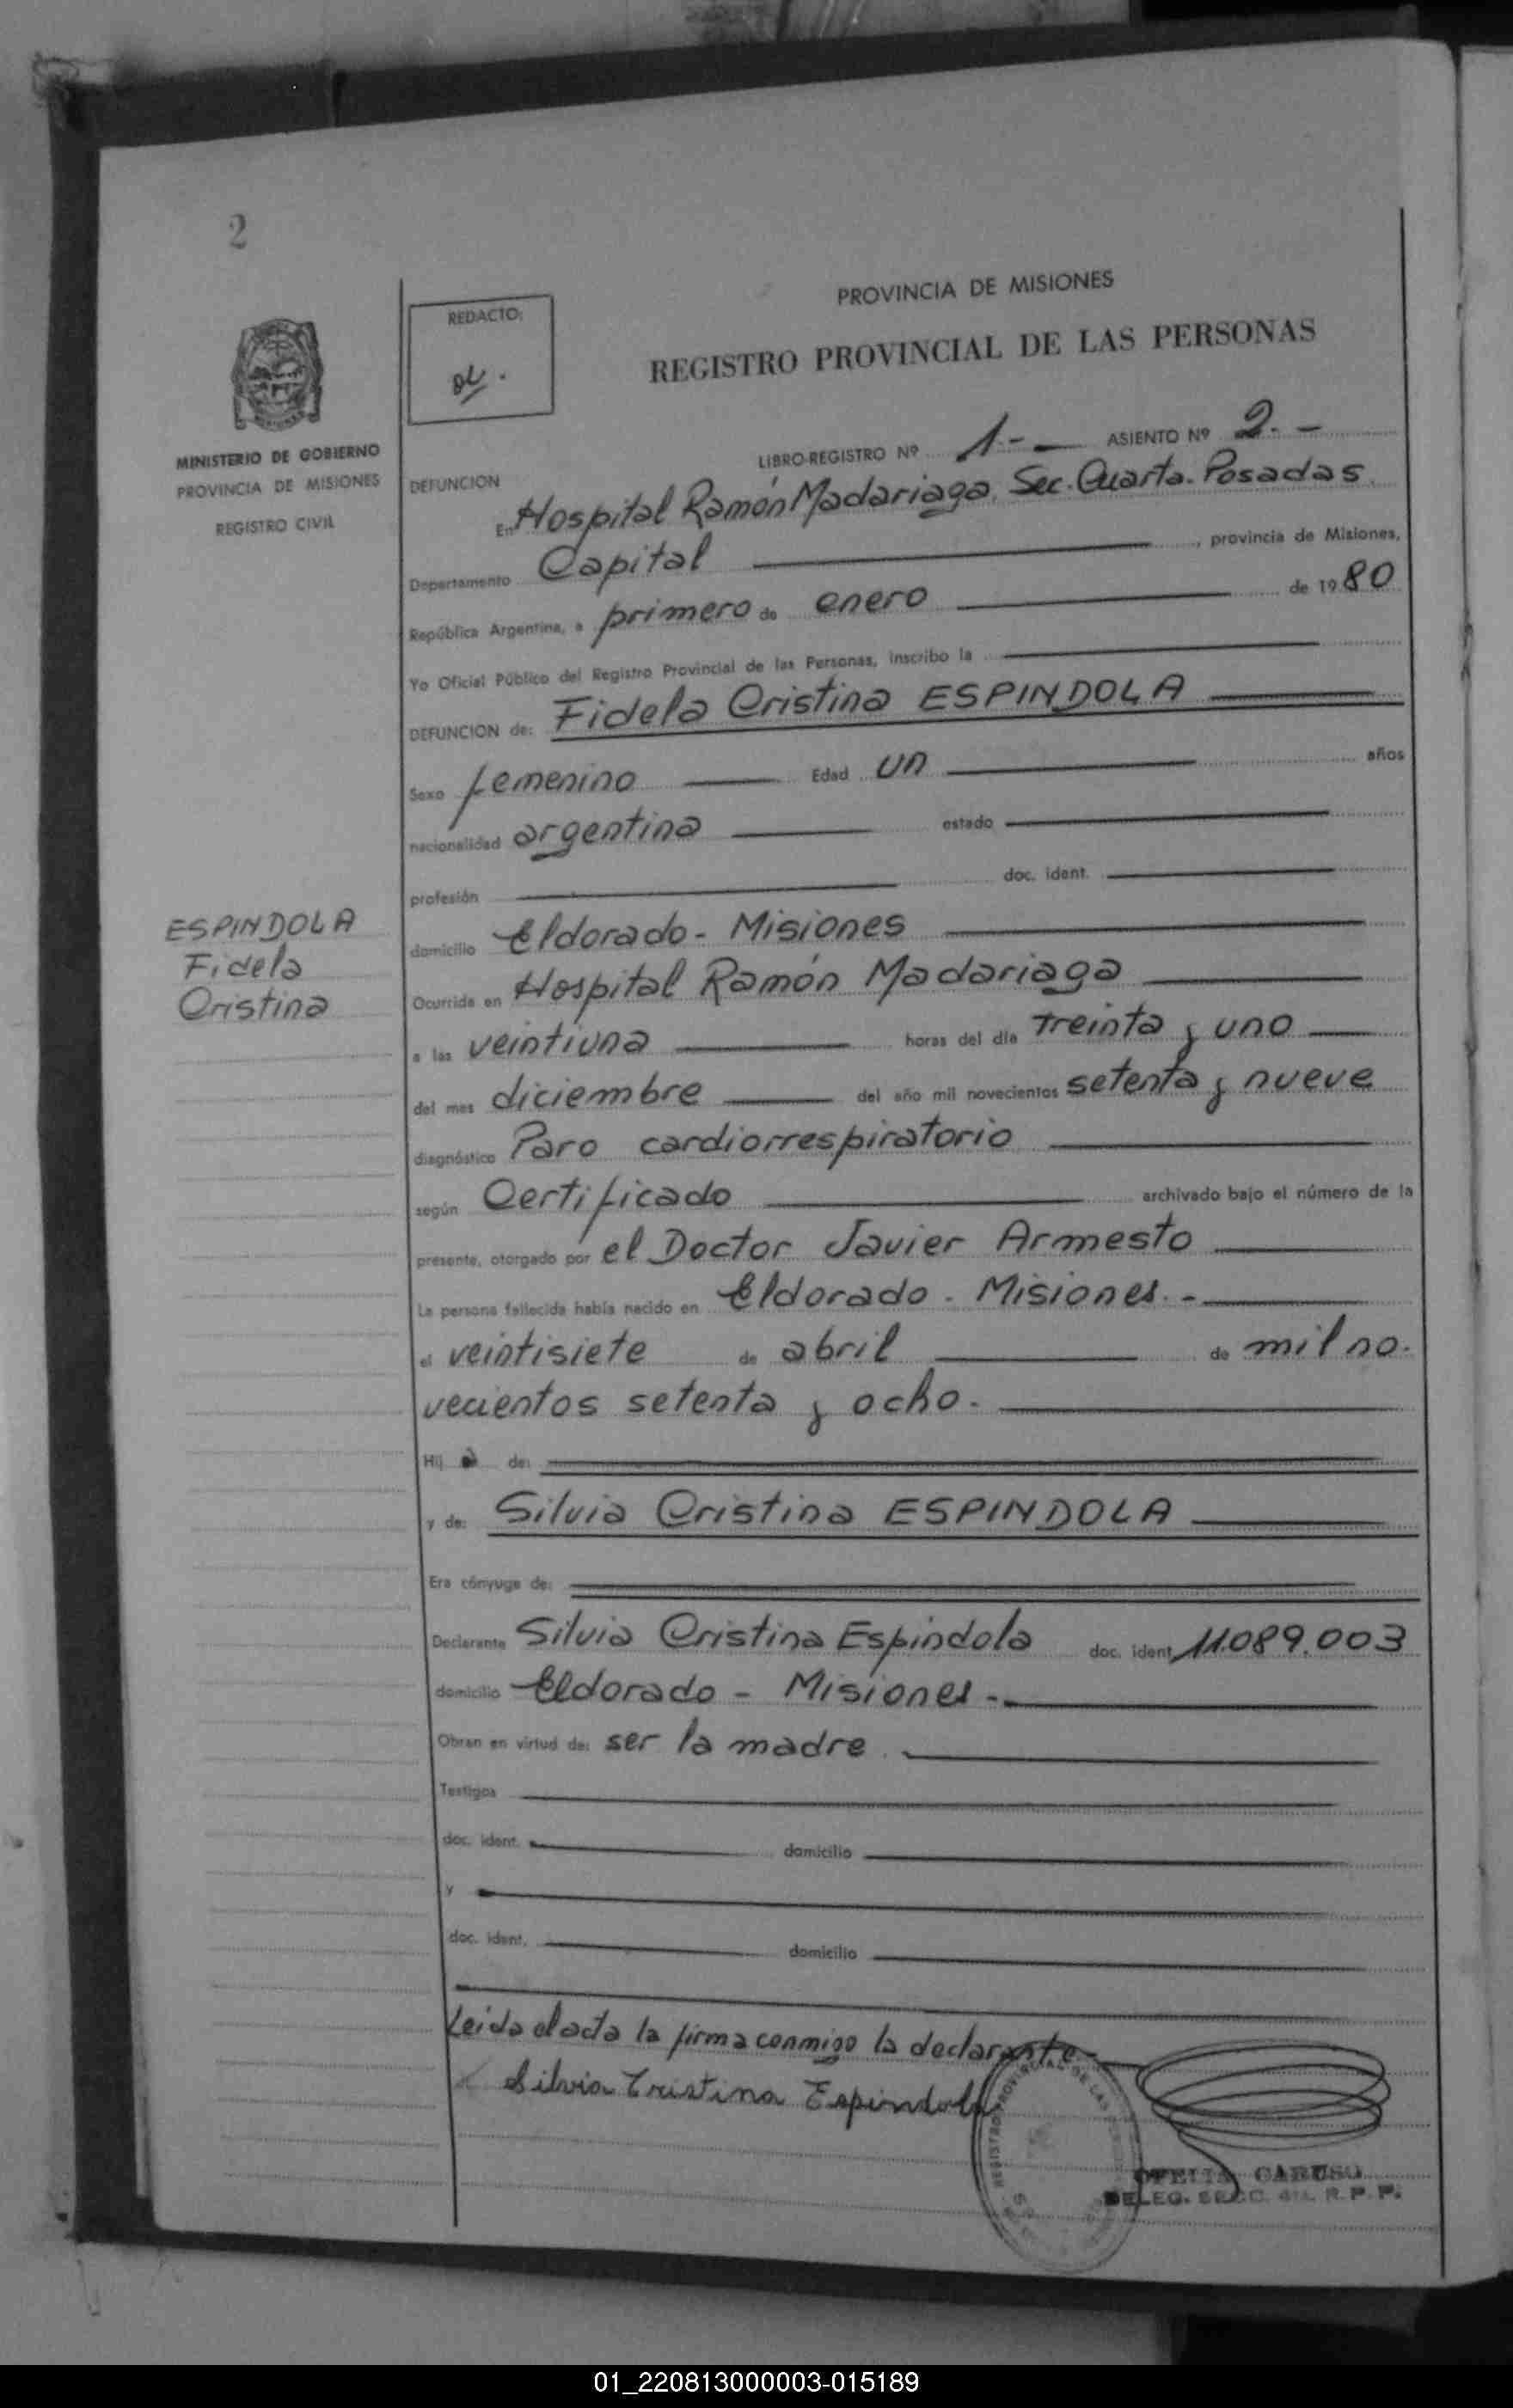 2
PROVINCIA DE MISIONES
REDACTO:
REGISTRO PROVINCIAL DE LAS PERSONAS
MINISTERIO DE GOBIERNO
PROVINCIA DE MISIONES
REGISTRO CIVIL
LIBRO-REGISTRO Nº 1-- ASIENTO Nº 2.-
DEFUNCION
En Hospital Ramón Madariaga, Sec. Cuarta. Posadas.
Departamento Capital , provincia de Misiones,
República Argentina, a primero de enero de 1980
Yo Oficial Público del Registro Provincial de las Personas, inscribo la
DEFUNCION de: Fidela Cristina ESPINDOLA
Sexo femenino Edad un años
nacionalidad argentina estado
profesión doc. ident.
ESPINDOLA
Fidela
Cristina
domicilio Eldorado - Misiones
Ocurrida en Hospital Ramón Madariaga
a las veintiuna horas del día treinta y uno
del mes diciembre del año mil novecientos setenta y nueve
diagnóstico Paro cardiorrespiratorio
según Certificado archivado bajo el número de la
presente, otorgado por el Doctor Javier Armesto
La persona fallecida había nacido en Eldorado - Misiones.-
el veintisiete de abril de mil no-
vecientos setenta y ocho.
Hij a de:
y de: Silvia Cristina ESPINDOLA
Era cónyuge de:
Declarante Silvia Cristina Espindola doc. ident. 11.089.003
domicilio Eldorado - Misiones -.
Obran en virtud de: ser la madre.
Testigos
doc. ident. domicilio
y
doc. ident. domicilio
Leida el acta la firma conmigo la declarante-
Silvia Cristina Espindola
REGISTRO PROVINCIAL DE LAS
OFELIA CARUSO
DELEG. SECC. 4ta. R. P. P.
01_220813000003-015189